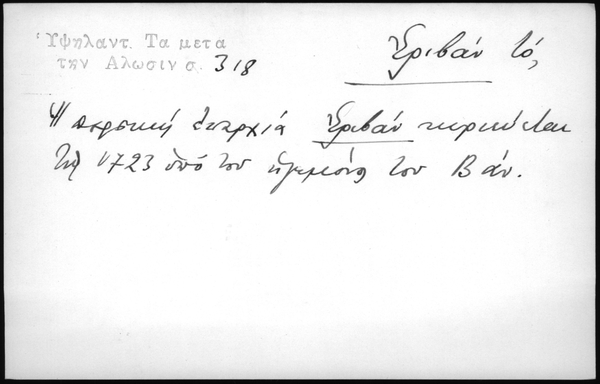 Ὑψηλαντ. Τα μετα
την Αλωσιν σ. 318
Ἐριβάν τό,
Ἡ περσική ἐπαρχία Ἐριβάν κυριεύεται
τῷ 1723 ὑπό του ἡγεμόνος του Βάν.